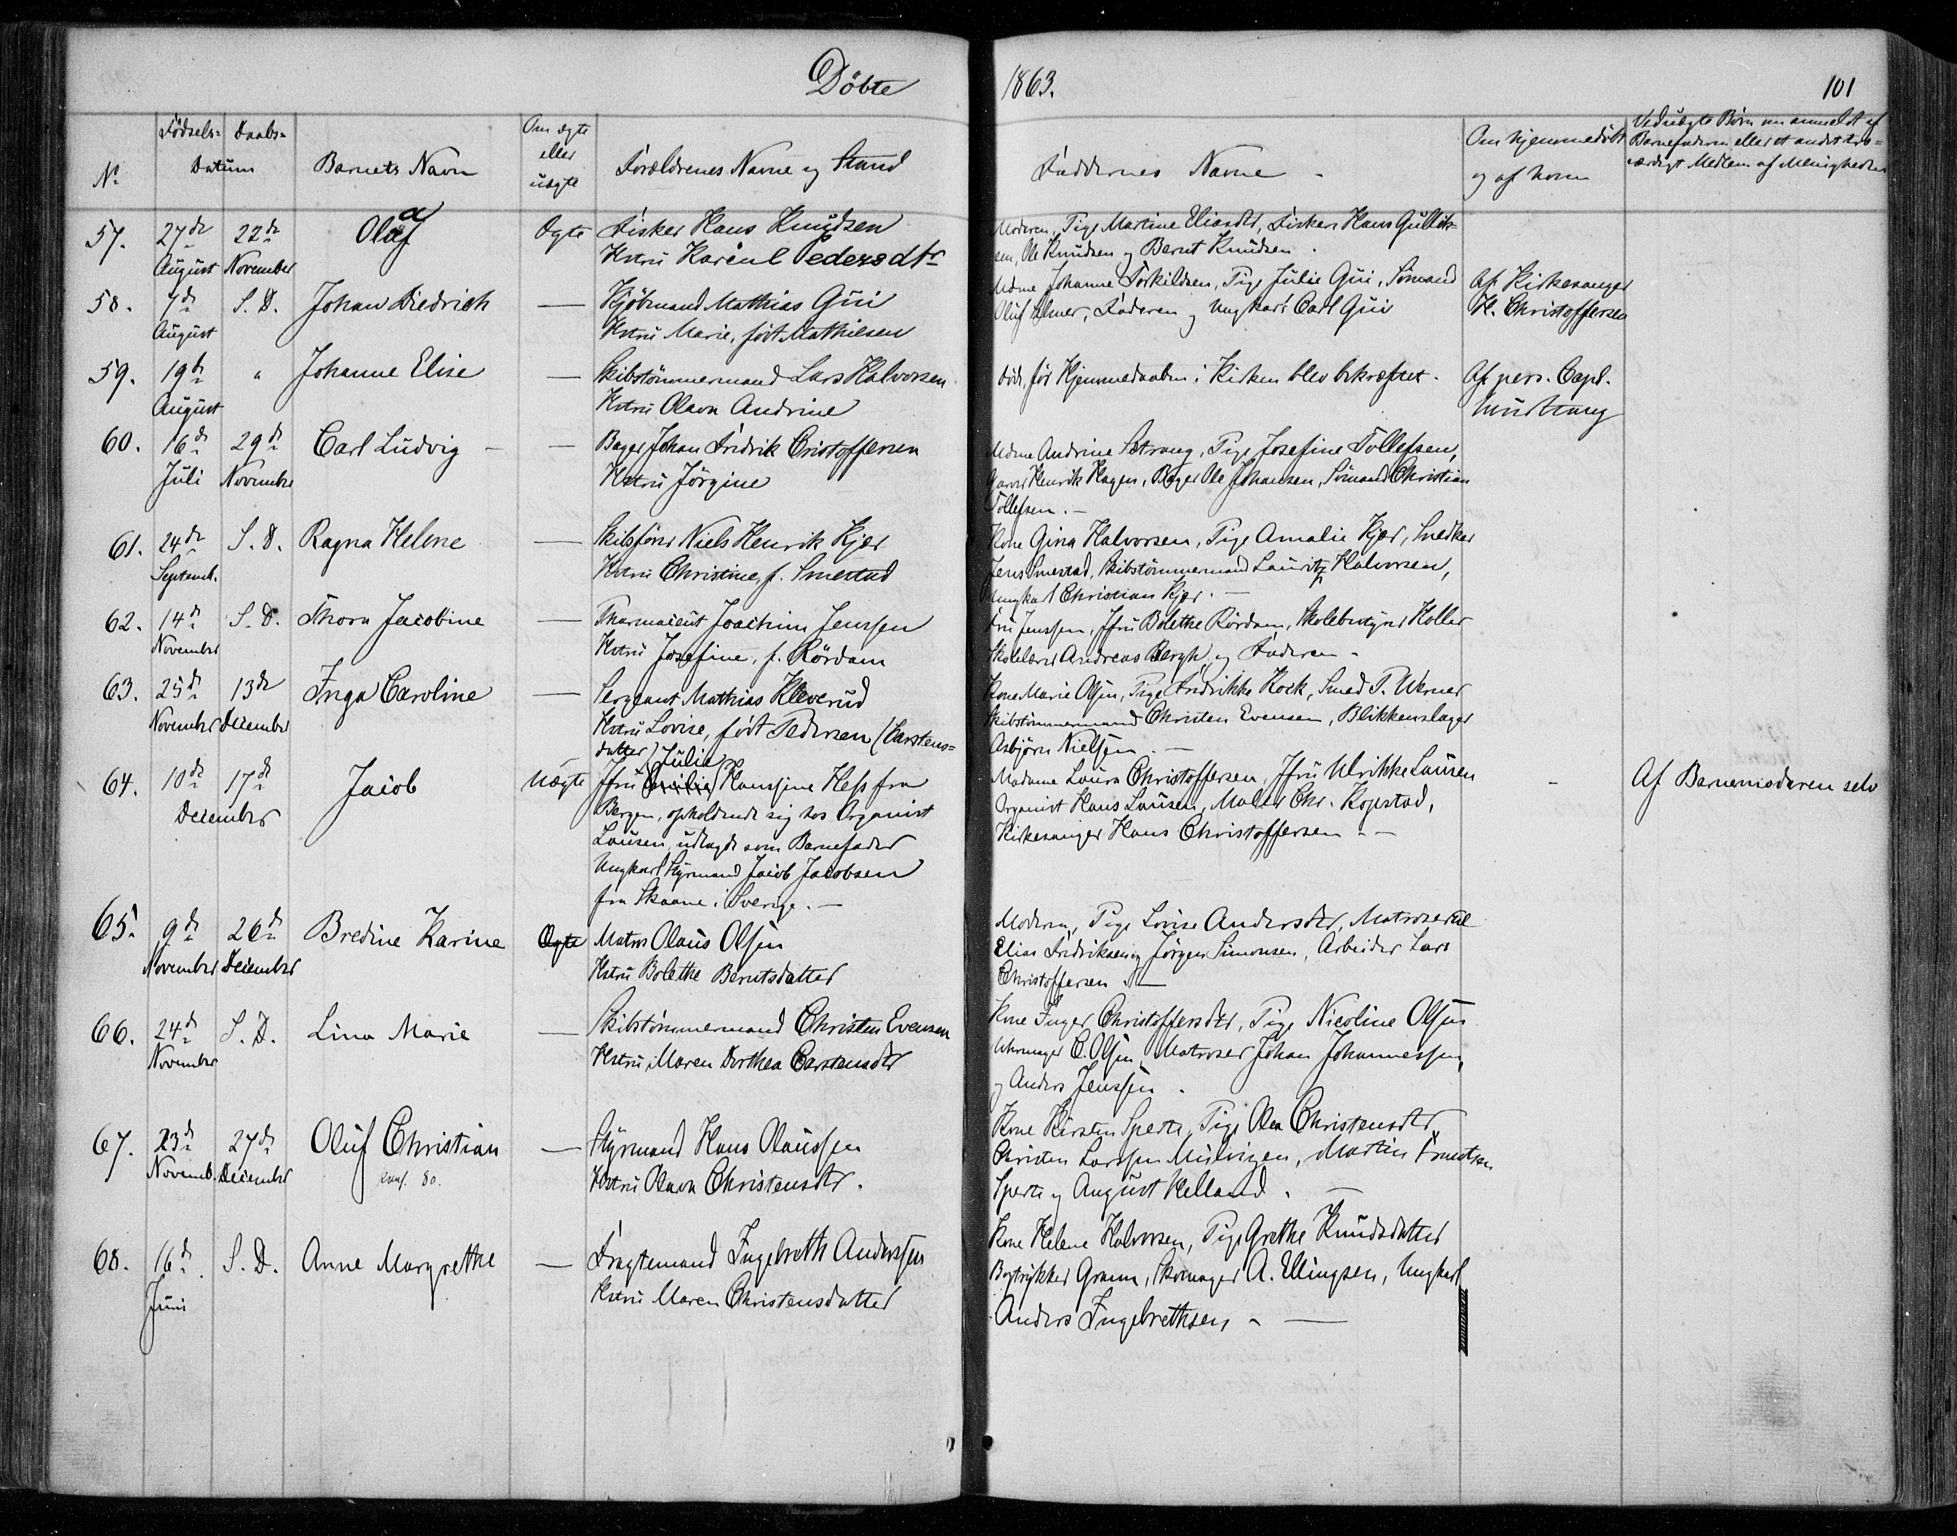 Döbte 1863. 101
No
Födsels- Daabs-
Datum
Barnets Navn
Om ægte
eller
uægte
Forældrenes Navne og Stand
Faddernes Navne
Om hjemmedöbt
og af hvem
Ved uægte Börn om anmeldt af
Barnefaderen eller et andet tro-
værdigt Medlem af Menigheden
57. 27de 22de Olaf a Ægte Fisker Hans Knudsen
August November Hstru Karen Pedersdtr
Moderen, Pige Martine Eliasdtr, Fisker Hans Gullik-
sen, Ole Knudsen og Bernt Knudsen
58. 7de S. D. Johan Diedrich — Kjöbmand Mathias Gui
August Hstru Marie, födt Mathiesen
Mdme Johanne Torkildsen, Pige Julie Gui, Sömand
Oluf Elmer, Faderen og Ungkarl Carl Gui
Af Kirkesanger
H. Christoffersen
59. 19de " Johanne Elise — Skibstömmermand Lars Halvorsen
August Hstru Olava Andrine
död, för Hjemmedaaben i Kirken blev bekræftet.
Af pers. Capl.
60. 16de 29de Carl Ludvig — — Bager Johan Fredrik Cristoffersen
Juli Novembr Hstru Jörgine
Mdme Andrine Setrang, Pige Josefine Tollefsen,
Garver Henrik Hagen, Bager Ole Johansen, Sömand Christian
Tollefsen.
61. 24de S. D. Ragna Helene — Skibsförer Niels Henrik Kjær
Septemb. Hstru Christine, f. Smestad
Kone Gina Halvorsen, Pige Amalie Kjær, Snedker
Jens Smestad, Skibstömmermand Lauritz Halvorsen,
Ungkarl Christian Kjær.
62. 14de S. D. Thora Jacobine — Pharmaceut Joachim Jenssen
November Hstru Josefine, f. Rördam
Fru Jenssen, Jfru Bolethe Rördam, Skolebestyrer Holler
Skolelærer Andreas Bergh og Faderen
63. 25de 13de Inga Caroline — Sergeant Mathias Kleverud
November December Hstru Lovise, födt Pedersen (Karstens-
datter)
Kone Marie Olsen, Pige Fredrikke Kock, Smed P. Werner
Skibstömmermand Christen Evensen, Blikkenslager
Asbjörn Nielsen.
64. 10de 17de Jacob Uægte Jfru Julie Hanssine Hess fra
December Bergen, opholdende sig hos Organist
Lausen, udlagde som Barnefader
Ungkarl Styrmand Jacob Jacobsen
fra Skaane i Sverige.
Madame Laura Christoffersen, Jfru Ulrikke Lausen
Organist Hans Lausen, Maler Chr. Kopstad,
Kirkesanger Hans Christoffersen
Af Barnemoderen selv
65. 9de 26de Bredine Karine Ægte Matros Olaus Olsen
November December Hstru Bolethe Berntsdatter
Moderen, Pige Lovise Andersdtr, Matroserne
Elias Fredriksen og Jörgen Simonsen, Arbeider Lars
Christoffersen.
66. 24de S. D. Lina Marie — Skibstömmermand Christen Evensen
November Hstru Maren Dorthea Carstensdtr
Kone Inger Christoffersdtr, Pige Nicoline Olsen
Uhrmager C. Olsen, Matroser Johan Johannessen,
og Anders Jenssen.
67. 23de 27de Oluf Christian — Styrmand Hans Olaussen
Novemb. December konf. 80. Hstru Olava Christensdtr.
Kone Kirsten Sperte, Pige Olea Christensdtr
Christen Larssen Mulvigen, Martin Knudsen
Sperte og August Helland.
68. 16de S. D. Anne Margrethe — Fragtemand Ingebreth Anderssen
Juni Hstru Maren Christensdatter
Kone Helene Halvorsen, Pige Grethe Knudsdatter
Bogtrykker Gram, Skomager A. Ellingsen, Ungkarl
Anders Ingebrethsen